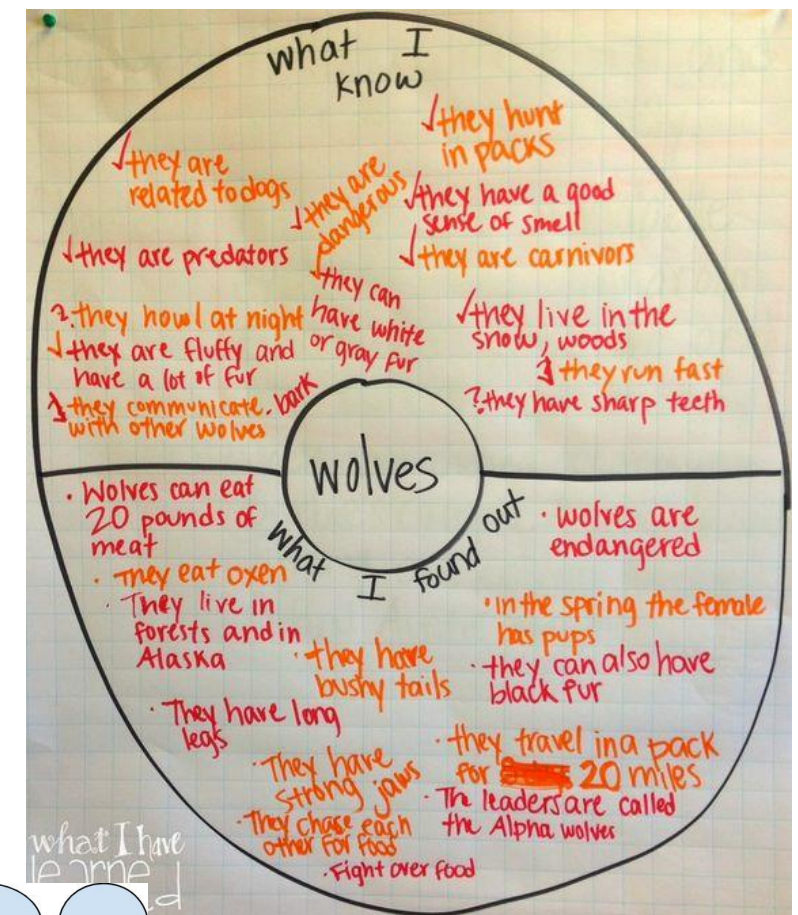 what I
know
✓they hunt
in packs
✓they are
related to dogs
✓they are
dangerous
✓they have a good
sense of smell
✓they are predators
✓they are carnivors
✓they can
have white
or gray fur
?they howl at night
✓they live in the
snow, woods
✓they are fluffy and
have a lot of fur
they run fast
they communicate. bark
with other wolves
?they have sharp teeth
wolves
what I found out
· Wolves can eat
20 pounds of
meat
· They eat oxen
· They live in
forests and in
Alaska
· they have
bushy tails
· They have long
legs
· They have
strong jaws
· They chase each
other for food
· Fight over food
· wolves are
endangered
· in the spring the female
has pups
· they can also have
black fur
· they travel in a pack
for 20 miles
· The leaders are called
the Alpha wolves
what I have
learned